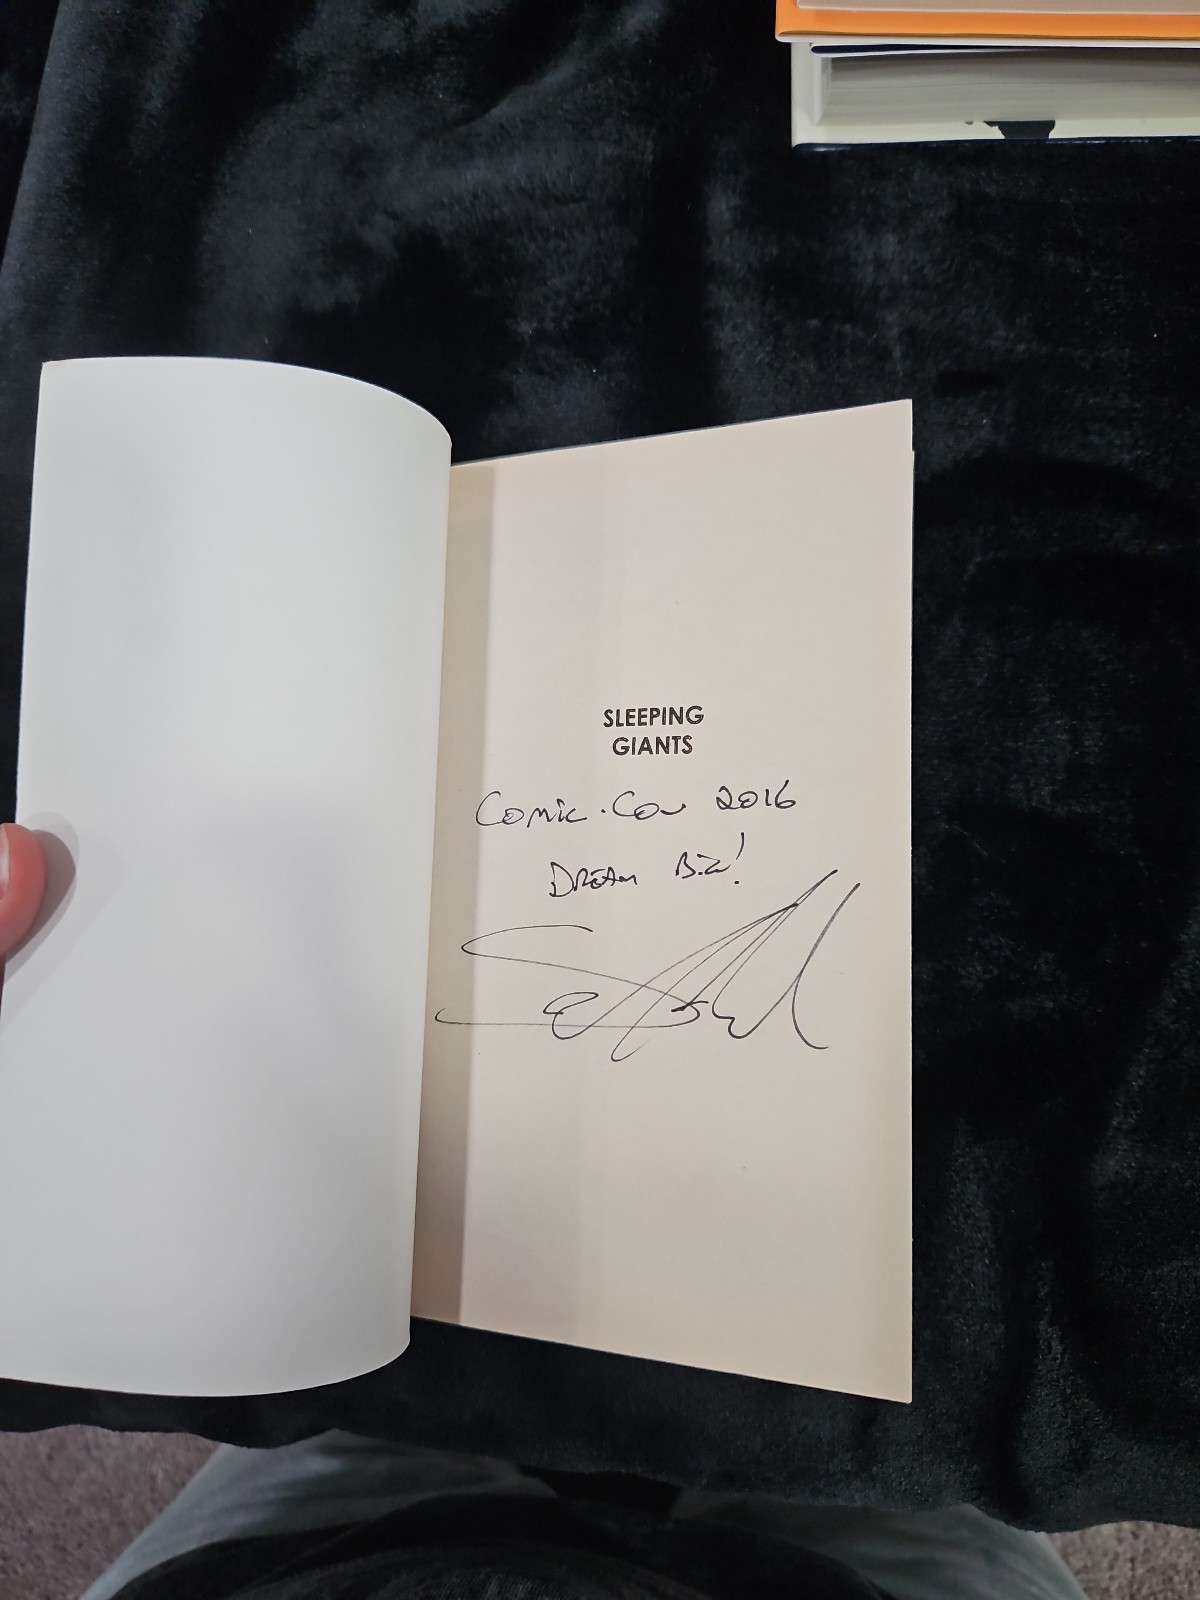 SLEEPING
GIANTS
Comic.Con 2016
Dream Big!